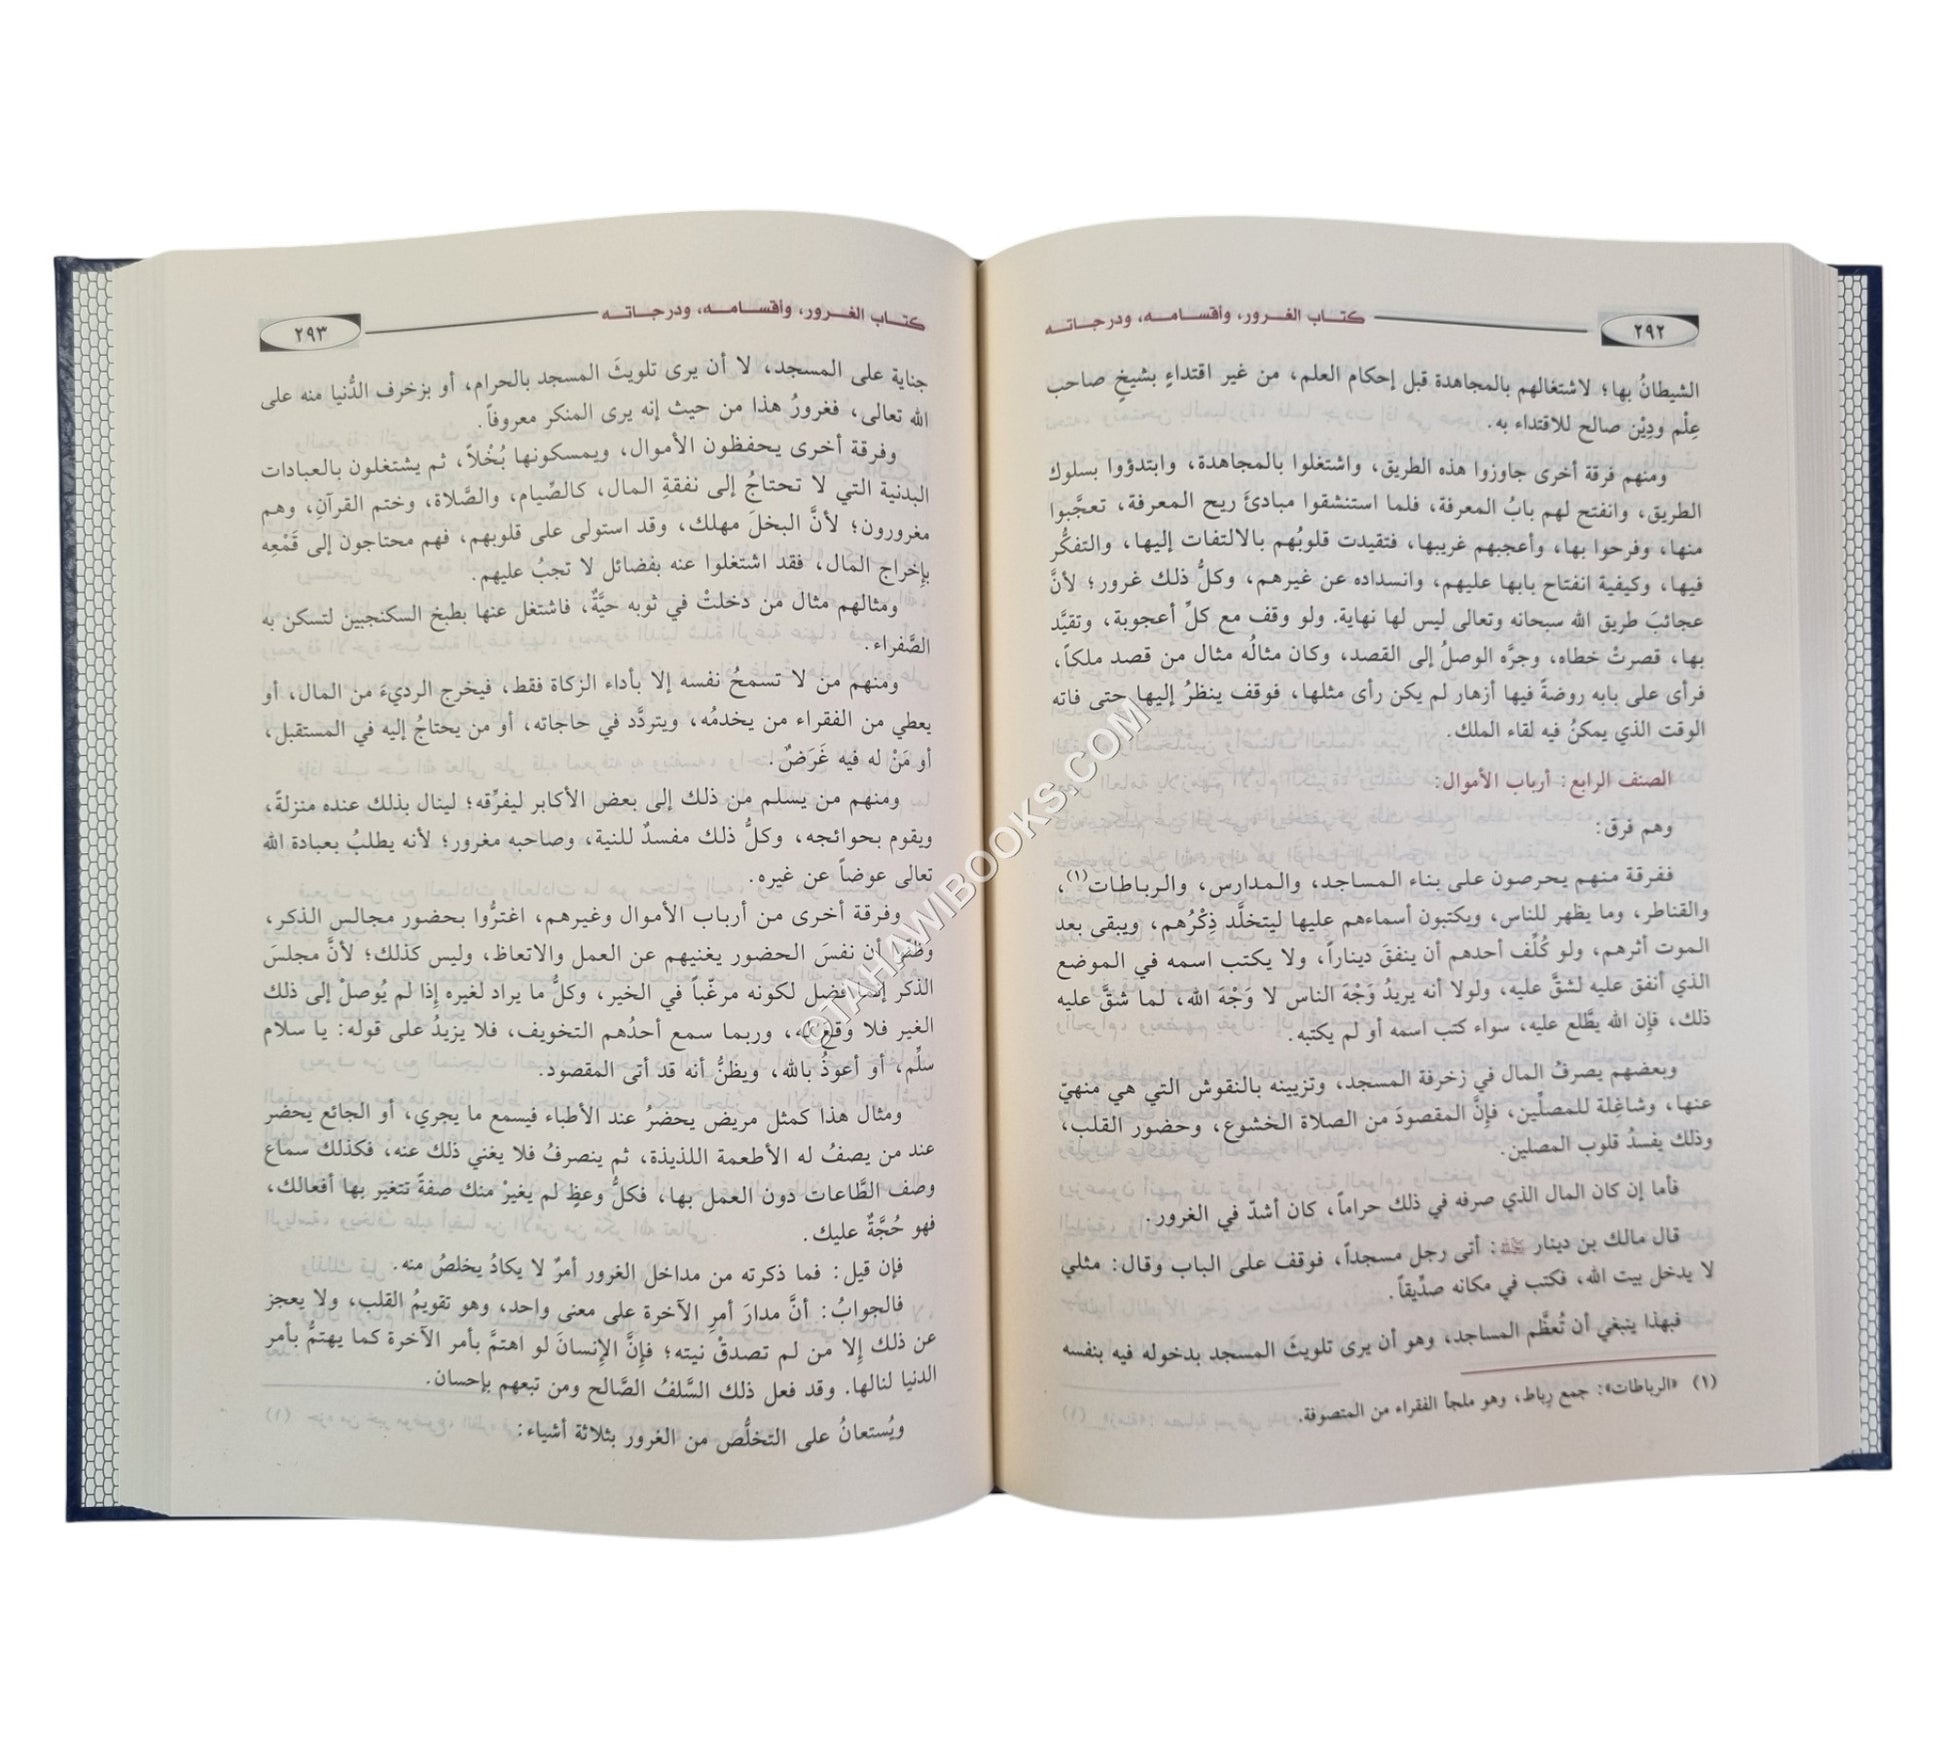 ٢٩٢ كتاب الغرور، وأقسامه، ودرجاته
الشيطانُ بها؛ لاشتغالهم بالمجاهدة قبل إحكام العلم، من غير اقتداءٍ بشيخٍ صاحب
عِلْم ودِيْن صالح للاقتداء به.
ومنهم فرقة أخرى جاوزوا هذه الطريق، واشتغلوا بالمجاهدة، وابتدؤوا بسلوك
الطريق، وانفتح لهم بابُ المعرفة، فلما استنشقوا مبادئَ ريح المعرفة، تعجَّبوا
منها، وفرحوا بها، وأعجبهم غريبها، فتقيدت قلوبُهم بالالتفات إليها، والتفكُّر
فيها، وكيفية انفتاح بابها عليهم، وانسداده عن غيرهم، وكلُّ ذلك غرور؛ لأنَّ
عجائبَ طريق الله سبحانه وتعالى ليس لها نهاية. ولو وقف مع كلِّ أعجوبة، وتقيَّد
بها، قصرتْ خطاه، وجرَّه الوصلُ إلى القصد، وكان مثالُه مثال من قصد ملكاً،
فرأى على بابه روضةً فيها أزهار لم يكن رأى مثلها، فوقف ينظرُ إليها حتى فاته
الوقت الذي يمكنُ فيه لقاء الملك.
الصنف الرابع: أرباب الأموال:
وهم فرق:
ففرقة منهم يحرصون على بناء المساجد، والمدارس، والرباطات(١)،
والقناطر، وما يظهر للناس، ويكتبون أسماءهم عليها ليتخلَّد ذِكْرُهم، ويبقى بعد
الموت أثرهم، ولو كُلِّف أحدهم أن ينفقَ ديناراً، ولا يكتب اسمه في الموضع
الذي أنفق عليه لشقَّ عليه، ولولا أنه يريدُ وَجْهَ الناس لا وَجْهَ الله، لما شقَّ عليه
ذلك، فإن الله يطَّلع عليه، سواء كتب اسمه أو لم يكتبه.
وبعضهم يصرفُ المال في زخرفة المسجد، وتزيينه بالنقوش التي هي منهيّ
عنها، وشاغِلة للمصلِّين، فإنَّ المقصودَ من الصلاة الخشوع، وحضور القلب،
وذلك يفسدُ قلوب المصلين.
فأما إن كان المال الذي صرفه في ذلك حراماً، كان أشدّ في الغرور.
قال مالك بن دينار: أتى رجل مسجداً، فوقف على الباب وقال: مثلي
لا يدخل بيت الله، فكتب في مكانه صدِّيقاً.
فبهذا ينبغي أن تُعظَّم المساجد، وهو أن يرى تلويثَ المسجد بدخوله فيه بنفسه
(١) «الرباطات»: جمع رِباط، وهو ملجأ الفقراء من المتصوفة.
كتاب الغرور، وأقسامه، ودرجاته ٢٩٣
جناية على المسجد، لا أن يرى تلويثَ المسجد بالحرام، أو بزخرف الدُّنيا منه على
الله تعالى، فغرورُ هذا من حيث إنه يرى المنكر معروفاً.
وفرقة أخرى يحفظون الأموال، ويمسكونها بُخْلاً، ثم يشتغلون بالعبادات
البدنية التي لا تحتاجُ إلى نفقةِ المال، كالصِّيام، والصَّلاة، وختم القرآنِ، وهم
مغرورون؛ لأنَّ البخلَ مهلك، وقد استولى على قلوبهم، فهم محتاجون إلى قَمْعِه
بإخراج المال، فقد اشتغلوا عنه بفضائل لا تجبُ عليهم.
ومثالهم مثال من دخلتْ في ثوبه حيَّةٌ، فاشتغل عنها بطبخ السكنجبين لتسكن به
الصَّفراء.
ومنهم من لا تسمحُ نفسه إلا بأداء الزكاة فقط، فيخرج الرديءَ من المال، أو
يعطي من الفقراء من يخدمُه، ويتردَّد في حاجاته، أو من يحتاجُ إليه في المستقبل،
أو مَنْ له فيه غَرَضٌ.
ومنهم من يسلم من ذلك إلى بعض الأكابر ليفرِّقه؛ لينال بذلك عنده منزلةً،
ويقوم بحوائجه، وكلُّ ذلك مفسدٌ للنية، وصاحبه مغرور؛ لأنه يطلبُ بعبادة الله
تعالى عوضاً عن غيره.
وفرقة أخرى من أرباب الأموال وغيرهم، اغترُّوا بحضور مجالس الذكر،
وظنُّوا أن نفسَ الحضور يغنيهم عن العمل والاتعاظ، وليس كذلك؛ لأنَّ مجلسَ
الذكر إنما فضل لكونه مرغّباً في الخير، وكلُّ ما يراد لغيره إذا لم يُوصلْ إلى ذلك
الغير فلا وقع له، وربما سمع أحدُهم التخويف، فلا يزيدُ على قوله: يا سلام
سلِّم، أو أعوذُ بالله، ويظنُّ أنه قد أتى المقصود.
ومثال هذا كمثل مريض يحضرُ عند الأطباء فيسمع ما يجري، أو الجائع يحضر
عند من يصفُ له الأطعمة اللذيذة، ثم ينصرفُ فلا يغني ذلك عنه، فكذلك سماع
وصف الطَّاعات دون العمل بها، فكلُّ وعظٍ لم يغيرْ منك صفةً تتغير بها أفعالك،
فهو حُجَّةٌ عليك.
فإن قيل: فما ذكرته من مداخل الغرور أمرٌ لا يكادُ يخلصُ منه.
فالجوابُ: أنَّ مدارَ أمرِ الآخرة على معنى واحد، وهو تقويمُ القلب، ولا يعجز
عن ذلك إلا من لم تصدقْ نيته؛ فإنَّ الإنسانَ لو اهتمَّ بأمر الآخرة كما يهتمُّ بأمر
الدنيا لنالها. وقد فعل ذلك السَّلفُ الصَّالح ومن تبعهم بإحسان.
ويُستعانُ على التخلُّص من الغرور بثلاثة أشياء:
©TAHAWIBOOKS.COM